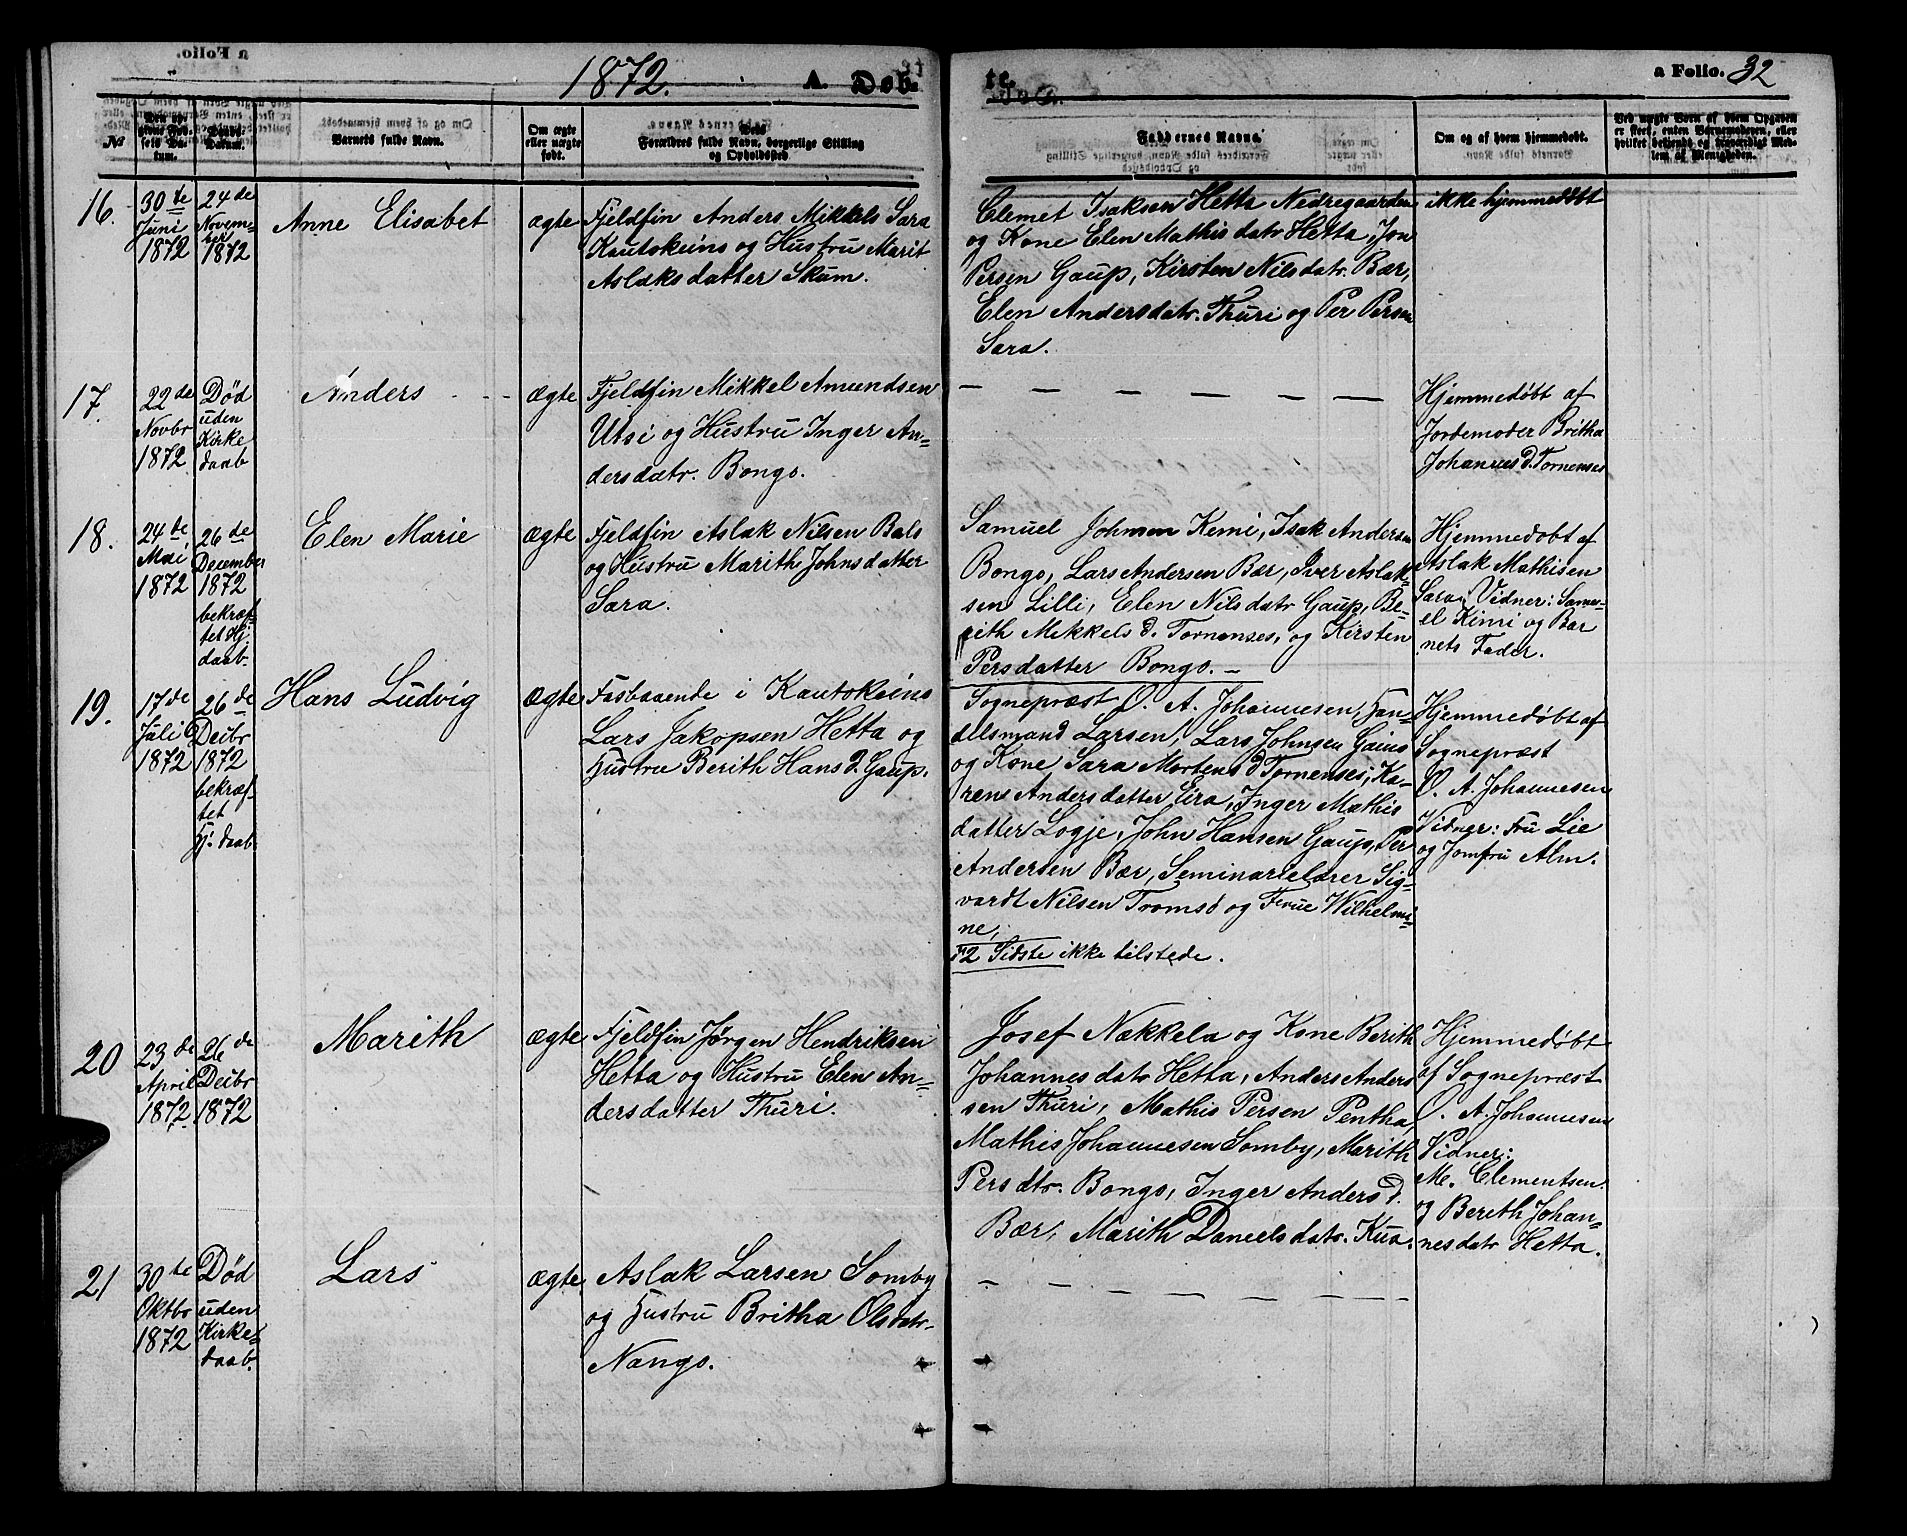 1872. A. Døb-
te. a Folio. 32
No
Barnets fulde Navn.
Om ægte eller uægte født.
Forældres fulde Navn, borgerlige Stilling og Opholdssted
Faddernes Navne.
Om og af hvem hjemmedøbt.
16.
30te
Juni
1872
24de
Novem-
ber
1872
Anne Elisabet
ægte
Fjeldfin Anders Mikkels Sara
Kautokeino og Hustru Marit
Aslaksdatter Skum.
Clemet Isaksen Hetta Nedregaarden
og Kone Elen Mathisdatr Hetta, Jon
Persen Gaup, Kirsten Nilsdatr. Bær,
Elen Andersdatr. Thuri og Per Persen
Sara.
ikke hjemmedøbt
17.
22de
Novbr
1872
Død
uden
Kirke
daab
Anders
ægte
Fjeldfin Mikkel Amundsen
Utsi og Hustru Inger An-
dersdatr. Bongo.
— — — — — —
Hjemmedøbt af
Jordemoder Britha
Johannesd. Tornenses
18.
24de
Mai
1872
26de
December
1872
bekræf-
tet Hj
daab.
Elen Marie
ægte
Fjeldfin Aslak Nilsen Bals
og Hustru Marith Johnsdatter
Sara.
Samuel Johnsen Kemi, Isak Andersen
Bongo, Lars Andersen Bær, Iver Aslak-
sen Lilli, Elen Nilsdatr Gaup, Be-
rith Mikkels d. Tornenses, og Kirsten
Persdatter Bongo. —
Hjemmedøbt af
Aslak Mathisen
Sara. Vidner: Samu-
el Kimi og Bar
nets Fader.
19.
17de
Juli
1872
26de
Decbr
1872
bekræf-
tet
Hj. daab.
Hans Ludvig
ægte
Fasboaende i Kautokeino
Lars Jakopsen Hetta og
Hustru Berith Hans d. Gaup.
Sognepræst O. A. Johannesen, Han-
delsmand Larsen, Lars Johnsen Gaino
og Kone Sara Mortens d Tornenses, Ka-
ren Andersdatter Eira, Inger Mathis
datter Logje, John Hansen Gaup, Per
Andersen Bær, Seminarielærer Sig-
vardt Nilsen Tromsø og Frue Wilhelmi-
ne,
F2 Sidste ikke tilstede.
Hjemmedøbt af
Sognepræst
O. A. Johannesen
Vidner: Fru Lie
og Jomfru Alm.
20
23de
April
1872
26de
Decbr
1872
Marith
ægte
Fjeldfin Jørgen Hendriksen
Hetta og Hustru Elen An-
dersdatter Thuri.
Josef Nækkela og Kone Berith
Johannesdatr Hetta, Anders Anders
sen Thuri, Mathis Persen Pentha,
Mathis Johannesen Somby, Marith
Persdtr. Bongo, Inger Anders d.
Bær, Marith Danielsdatr. Kua.
Hjemmedøbt
af Sognepræst
O. A. Johannesen
Vidner:
M. Clementsen.
og Bereth Johan-
nesdatr Hetta.
21
30te
Oktbr
1872
Død
uden
Kirke-
daab.
Lars
ægte
Aslak Larsen Somby
og Hustru Britha Olsdatr-
Nango.
— — — — — —